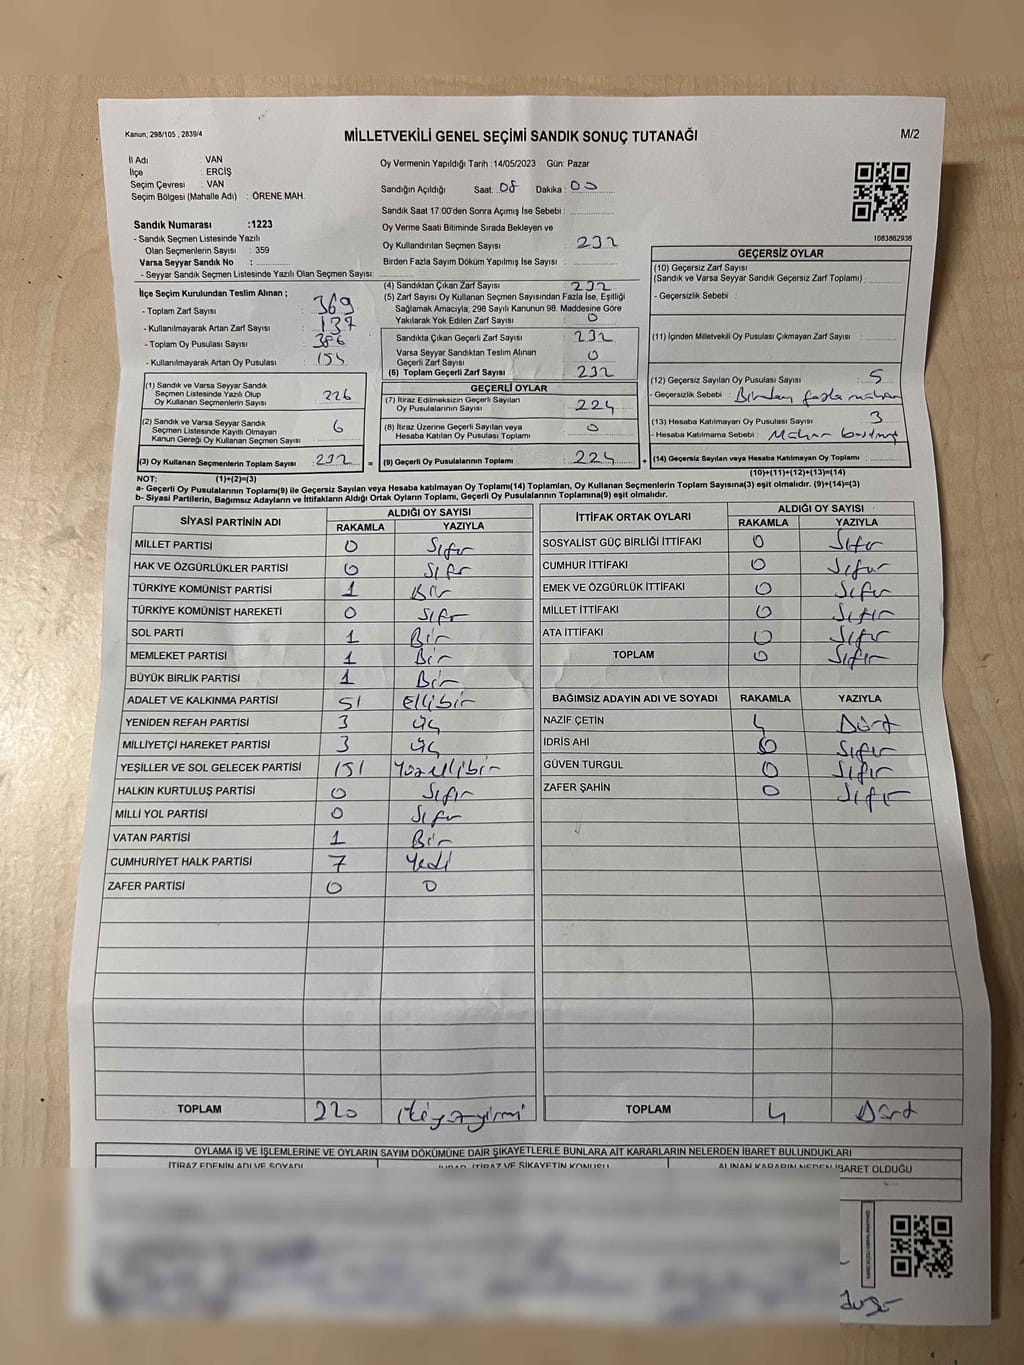 Kanun; 298/105 , 2839/4
MİLLETVEKİLİ GENEL SEÇİMİ SANDIK SONUÇ TUTANAĞI
M/2
İl Adı : VAN
İlçe : ERCİŞ
Seçim Çevresi : VAN
Seçim Bölgesi (Mahalle Adı) : ÖRENE MAH.
Oy Vermenin Yapıldığı Tarih :14/05/2023 Gün: Pazar
Sandığın Açıldığı Saat: 08 Dakika : 00
Sandık Saat 17:00'den Sonra Açımış İse Sebebi :
Sandık Numarası :1223
- Sandık Seçmen Listesinde Yazılı
Olan Seçmenlerin Sayısı : 359
Varsa Seyyar Sandık No :
- Seyyar Sandık Seçmen Listesinde Yazılı Olan Seçmen Sayısı:
Oy Verme Saati Bitiminde Sırada Bekleyen ve
Oy Kullandırılan Seçmen Sayısı : 232
Birden Fazla Sayım Döküm Yapılmış İse Sayısı :
1083862936
İlçe Seçim Kurulundan Teslim Alınan ;
- Toplam Zarf Sayısı : 369
- Kullanılmayarak Artan Zarf Sayısı : 137
- Toplam Oy Pusulası Sayısı : 386
- Kullanılmayarak Artan Oy Pusulası : 154
(1) Sandık ve Varsa Seyyar Sandık
Seçmen Listesinde Yazılı Olup
Oy Kullanan Seçmenlerin Sayısı : 226
(2) Sandık ve Varsa Seyyar Sandık
Seçmen Listesinde Kayıtlı Olmayan
Kanun Gereği Oy Kullanan Seçmen Sayısı : 6
(3) Oy Kullanan Seçmenlerin Toplam Sayısı : 232 =
(1)+(2)=(3)
(4) Sandıktan Çıkan Zarf Sayısı : 232
(5) Zarf Sayısı Oy Kullanan Seçmen Sayısından Fazla İse, Eşitliği
Sağlamak Amacıyla, 298 Sayılı Kanunun 98. Maddesine Göre
Yakılarak Yok Edilen Zarf Sayısı : 0
Sandıkta Çıkan Geçerli Zarf Sayısı : 232
Varsa Seyyar Sandıktan Teslim Alınan
Geçerli Zarf Sayısı : 0
(6) Toplam Geçerli Zarf Sayısı : 232
GEÇERLİ OYLAR
(7) İtiraz Edilmeksizin Geçerli Sayılan
Oy Pusulalarının Sayısı : 224
(8) İtiraz Üzerine Geçerli Sayılan veya
Hesaba Katılan Oy Pusulası Toplamı : 0
(9) Geçerli Oy Pusulalarının Toplamı : 224 +
GEÇERSİZ OYLAR
(10) Geçersiz Zarf Sayısı
(Sandık ve Varsa Seyyar Sandık Geçersiz Zarf Toplamı) :
- Geçersizlik Sebebi :
(11) İçinden Milletvekili Oy Pusulası Çıkmayan Zarf Sayısı :
(12) Geçersiz Sayılan Oy Pusulası Sayısı : 5
- Geçersizlik Sebebi : Birden fazla mühür
(13) Hesaba Katılmayan Oy Pusulası Sayısı : 3
- Hesaba Katılmama Sebebi : Mühür
(14) Geçersiz Sayılan veya Hesaba Katılmayan Oy Toplamı :
(10)+(11)+(12)+(13)=(14)
NOT:
a- Geçerli Oy Pusulalarının Toplamı(9) ile Geçersiz Sayılan veya Hesaba katılmayan Oy Toplamı(14) Toplamları, Oy Kullanan Seçmenlerin Toplam Sayısına(3) eşit olmalıdır. (9)+(14)=(3)
b- Siyasi Partilerin, Bağımsız Adayların ve İttifakların Aldığı Ortak Oyların Toplamı, Geçerli Oy Pusulalarının Toplamına(9) eşit olmalıdır.
SİYASİ PARTİNİN ADI ALDIĞI OY SAYISI
RAKAMLA YAZIYLA
MİLLET PARTİSİ 0 Sıfır
HAK VE ÖZGÜRLÜKLER PARTİSİ 0 Sıfır
TÜRKİYE KOMÜNİST PARTİSİ 1 Bir
TÜRKİYE KOMÜNİST HAREKETİ 0 Sıfır
SOL PARTİ 1 Bir
MEMLEKET PARTİSİ 1 Bir
BÜYÜK BİRLİK PARTİSİ 1 Bir
ADALET VE KALKINMA PARTİSİ 51 Ellibir
YENİDEN REFAH PARTİSİ 3 üç
MİLLİYETÇİ HAREKET PARTİSİ 3 üç
YEŞİLLER VE SOL GELECEK PARTİSİ 151 Yüzellibir
HALKIN KURTULUŞ PARTİSİ 0 Sıfır
MİLLİ YOL PARTİSİ 0 Sıfır
VATAN PARTİSİ 1 Bir
CUMHURİYET HALK PARTİSİ 7 Yedi
ZAFER PARTİSİ 0 0
TOPLAM 220 ikiyüzyirmi
İTTİFAK ORTAK OYLARI ALDIĞI OY SAYISI
RAKAMLA YAZIYLA
SOSYALİST GÜÇ BİRLİĞİ İTTİFAKI 0 Sıfır
CUMHUR İTTİFAKI 0 Sıfır
EMEK VE ÖZGÜRLÜK İTTİFAKI 0 Sıfır
MİLLET İTTİFAKI 0 Sıfır
ATA İTTİFAKI 0 Sıfır
TOPLAM 0 Sıfır
BAĞIMSIZ ADAYIN ADI VE SOYADI RAKAMLA YAZIYLA
NAZİF ÇETİN 4 Dört
İDRİS AHİ 0 Sıfır
GÜVEN TURGUL 0 Sıfır
ZAFER ŞAHİN 0 Sıfır
TOPLAM 4 Dört
OYLAMA İŞ VE İŞLEMLERİNE VE OYLARIN SAYIM DÖKÜMÜNE DAİR ŞİKAYETLERLE BUNLARA AİT KARARLARIN NELERDEN İBARET BULUNDUKLARI
İTİRAZ EDENİN ADI VE SOYADI İTİRAZ VE ŞİKAYETİN KONUSU ALINAN KARARIN NEDEN İBARET OLDUĞU